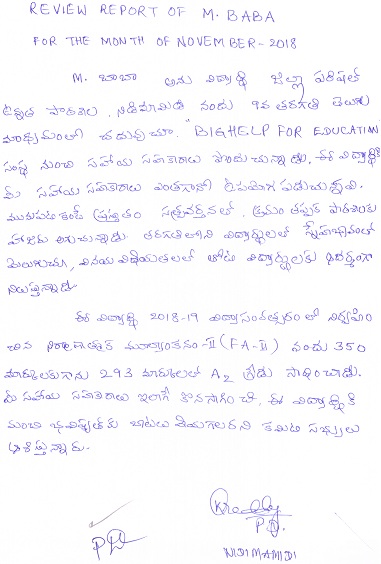 REVIEW REPORT OF M. BABA
FOR THE MONTH OF NOVEMBER-2018
M. బాబా అను విద్యార్థి జిల్లా పరిషత్
ఉన్నత పాఠశాల, నిడిమామిడి నందు 9వ తరగతి తెలుగు
మాధ్యమంలో చదువుచూ "BIGHELP FOR EDUCATION"
సంస్థ నుంచి సహాయ సహకారాలు పొందుచున్నాడు. ఈ విద్యార్థికి
మీ సహాయ సహకారాలు ఎంతగానో ఉపయోగ పడుచున్నవి.
మునుపటి కంటే ప్రస్తుతం సత్ప్రవర్తనతో, క్రమం తప్పక పాఠశాలకు
హాజరు అగుచున్నాడు. తరగతిలోని విద్యార్థులతో స్నేహభావంతో
మెలుగుచూ, వినయ విధేయతలతో తోటి విద్యార్థులకు ఆదర్శంగా
నిలుస్తున్నాడు.
ఈ విద్యార్థి 2018-19 విద్యాసంవత్సరంలో నిర్వహిం
చిన నిర్మాణాత్మక మూల్యాంకనం-II (FA-II) నందు 350
మార్కులకుగాను 293 మార్కులతో A2 గ్రేడు సాధించాడు.
మీ సహాయ సహకారాలు ఇలాగే కొనసాగించి, ఈ విద్యార్థికి
మంచి భవిష్యత్ కు బాటలు వేయగలరని కమిటి సభ్యులు
ఆశిస్తున్నారు.
P.D.
NIDIMAMIDI